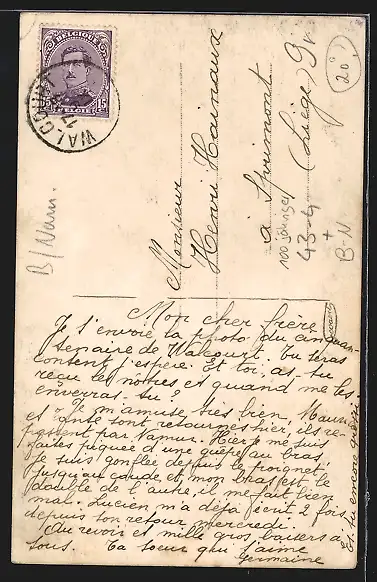 BELGIQUE
15 15
BELGIË
WALCOURT
20
Monsieur
Henri Hainaux
à Sprimont
(Liège)
43-4
+
B-N
B/Nam.
Mon cher frère
Je t'envoie la photo du cinquan-
tenaire de Walcourt. Tu seras
content j'espère. Et toi, as-tu
reçu les notres et quand me les
enverras-tu?
Je m'amuse très bien, 
et  sont retournés hier, ils re-
passent par Namur. Hier je me suis
faites piquée d'une guêpe au bras
Je suis gonflée depuis le poignet
jusqu'au coude et mon bras est le
double de l'autre, il me fait bien
mal. Lucien m'a déjà écrit 2 fois
depuis son retour mercredi.
Au revoir et mille gros baisers à
tous. Ta soeur qui t'aime
Germaine
Es-tu encore guéri